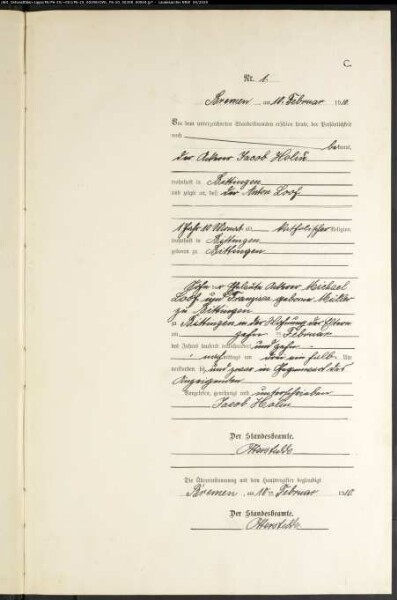 C.
Nr. 1.
Bremen am 10. Februar 1910.
Vor dem unterzeichneten Standesbeamten erschien heute, der Persönlichkeit
nach
bekannt,
der Ackerer Jacob
wohnhaft in Bettingen
und zeigte an, daß der Anton
1 Jahr 10 Monat alt katholischer Religion
wohnhaft in Bettingen
geboren zu Bettingen
Sohn der Eheleute Ackerer Michael
und Franziska geborene Müller
zu Bettingen
in Bettingen in der Wohnung der Eltern
am zehn ten Februar
des Jahres tausend neunhundert und zehn
nachmittags um drei ein halb Uhr
verstorben sei und zwar in Gegenwart des
Anzeigenden
Vorgelesen, genehmigt und unterschrieben
Jacob
Der Standesbeamte.
Die Übereinstimmung mit dem Hauptregister beglaubigt
Bremen am 10. ten Februar 1910.
Der Standesbeamte.